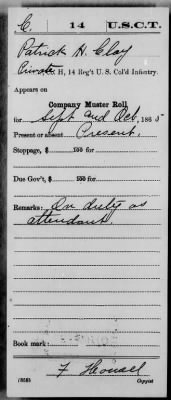 C. 14 U.S.C.T.
Patrick H. Clay
Private, H, 14 Reg't U. S. Col'd Infantry.
Appears on
Company Muster Roll
for Sept and Oct, 1865
Present or absent Present.
Stoppage, $ 100 for
Due Gov't, $ 100 for
Remarks: On duty as
attendant.
Book mark:
(858b)
Copyist